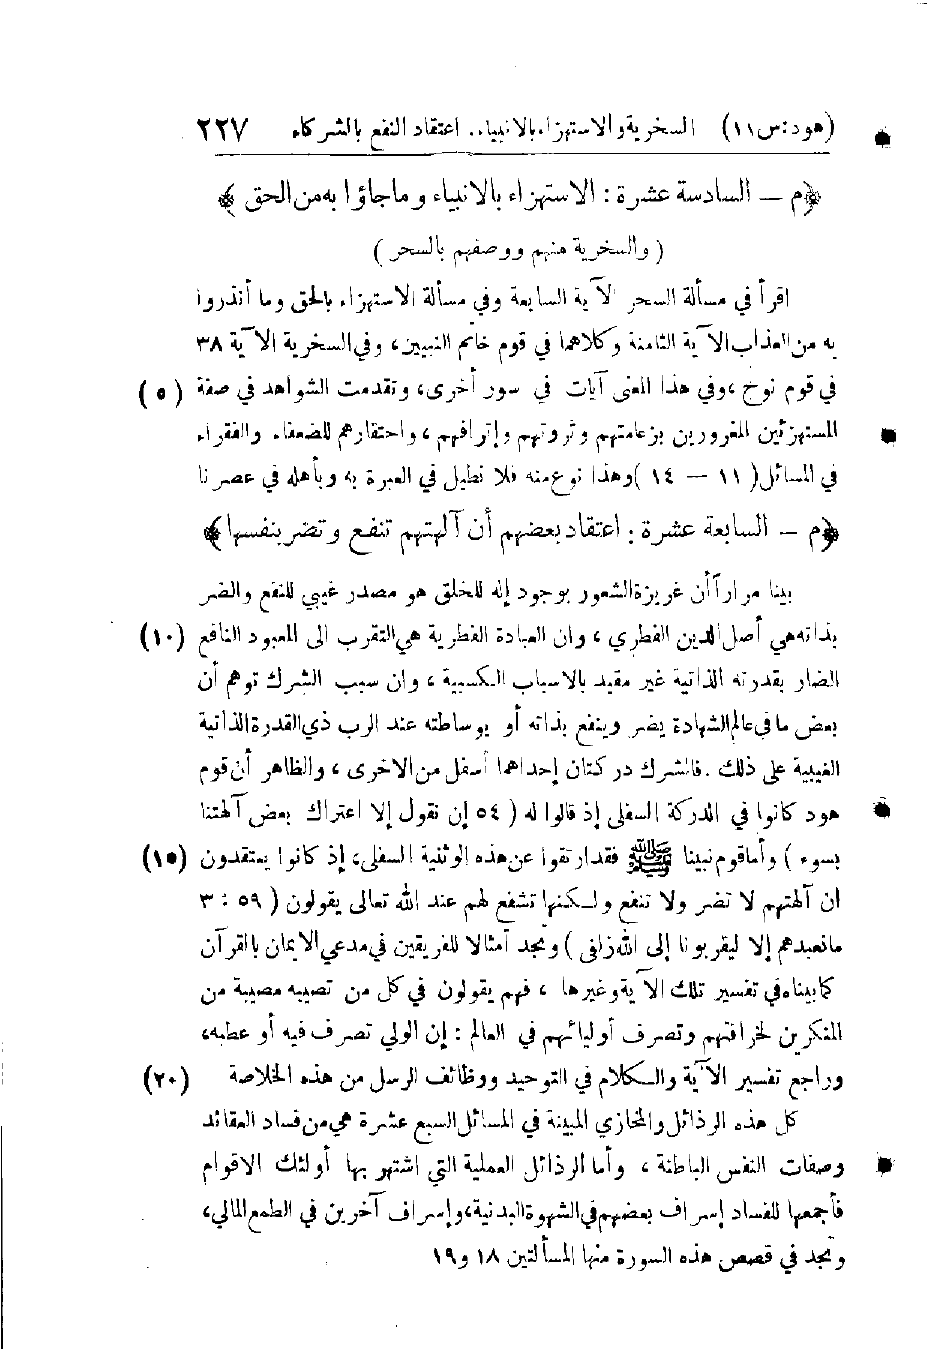 (هود: س ١١) السخرية والاستهزاء بالانبياء. اعتقاد النفع بالشركاء ٢٢٧
﴿م — السادسة عشرة : الاستهزاء بالانبياء وماجاؤا به من الحق ﴾
( والسخرية منهم ووصفهم بالسحر )
اقرأ في مسألة السحر الآية السابعة وفي مسألة الاستهزاء بالحق وما أنذروا
به من العذاب الآية الثامنة وكلاهما في قوم خاتم النبيين، وفي السخرية الآية ٣٨
في قوم نوح ،وفي هذا المعنى آيات في سور أخرى، وتقدمت الشواهد في صفة (٥)
المستهزئين المغرورين بزعامتهم وثروتهم وإترافهم ، واحتقارهم للضعفاء والفقراء
في المسائل( ١١ — ١٤ )وهذا نوع منه فلا نطيل في العبرة به وبأهله في عصرنا
﴿م — السابعة عشرة : اعتقاد بعضهم أن آلهتهم تنفع وتضر بنفسها﴾
بينا مراراً أن غريزة الشعور بوجود إله للخلق هو مصدر غيبي للنفع والضر
بذاته هي أصل الدين الفطري ، وان العبادة الفطرية هي التقرب الى المعبود النافع (١٠)
الضار بقدرته الذاتية غير مقيد بالاسباب الكسبية ، وان سبب الشرك توهم أن
بعض ما في عالم الشهادة يضر وينفع بذاته أو بوساطته عند الرب ذي القدرة الذاتية
الغيبية على ذلك . فالشرك دركتان إحداهما أسفل من الاخرى ، والظاهر أن قوم
هود كانوا في الدركة السفلى إذ قالوا له ( ٥٤ إن نقول إلا اعتراك بعض آلهتنا
بسوء ) وأما قوم نبينا ﷺ فقد ارتقوا عن هذه الوثنية السفلى، إذ كانوا يعتقدون (١٥)
ان آلهتهم لا تضر ولا تنفع ولكنها تشفع لهم عند الله تعالى يقولون ( ٥٩ : ٣
مانعبدهم إلا ليقربونا إلى الله زلفى ) ونجد أمثالا للفريقين في مدعي الايمان بالقرآن
كما بيناه في تفسير تلك الآية وغيرها ، فهم يقولون في كل من تصيبه مصيبة من
المنكرين لخرافتهم وتصرف أوليائهم في العالم : إن الولي تصرف فيه أو عطبه،
وراجع تفسير الآية والكلام في التوحيد ووظائف الرسل من هذه الخلاصة (٢٠)
كل هذه الرذائل والمخازي المبينة في المسائل السبع عشرة هي من فساد العقائد
وصفات النفس الباطنة ، وأما الرذائل العملية التي اشتهر بها أولئك الاقوام
فأجمعها للفساد إسراف بعضهم في الشهوة البدنية، وإسراف آخرين في الطمع المالي،
وتجد في قصص هذه السورة منها المسألتين ١٨ و ١٩